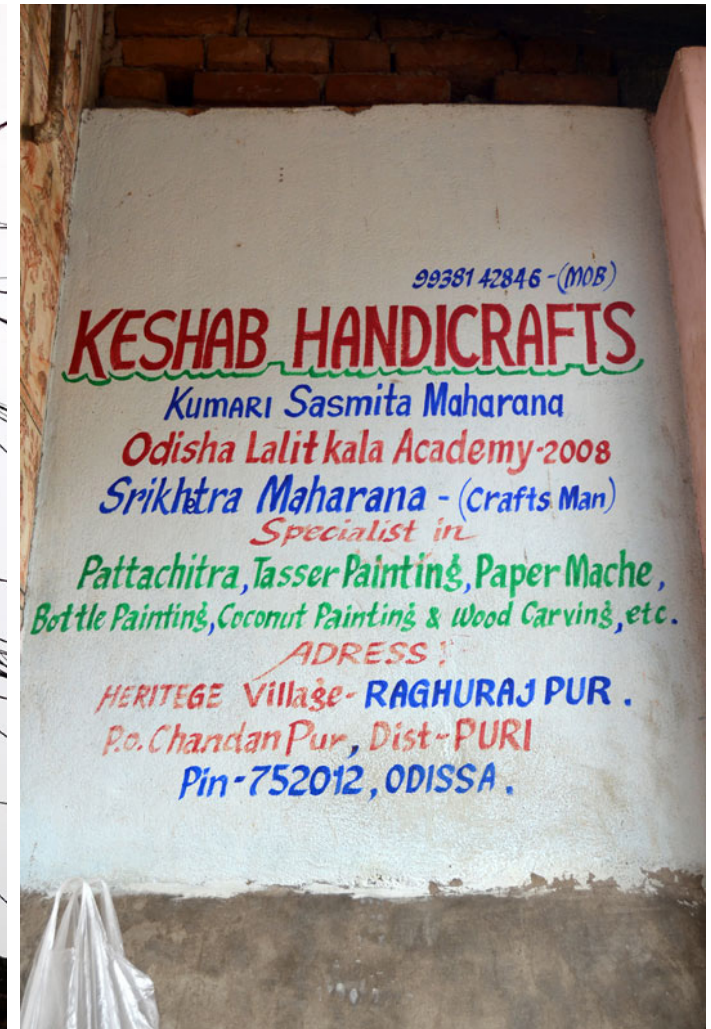 99381 42846 - (MOB)
KESHAB HANDICRAFTS
KUMARI Sasmita Maharana
Odisha Lalit kala Academy-2008
Srikhetra Maharana - (Crafts Man)
Specialist in
Pattachitra, Tasser Painting, Paper Mache,
Bottle Painting, Coconut Painting & Wood Carving, etc.
ADRESS :
HERITEGE Village - RAGHURAJ PUR .
P.o. Chandan Pur, Dist - PURI
Pin - 752012, ODISSA .